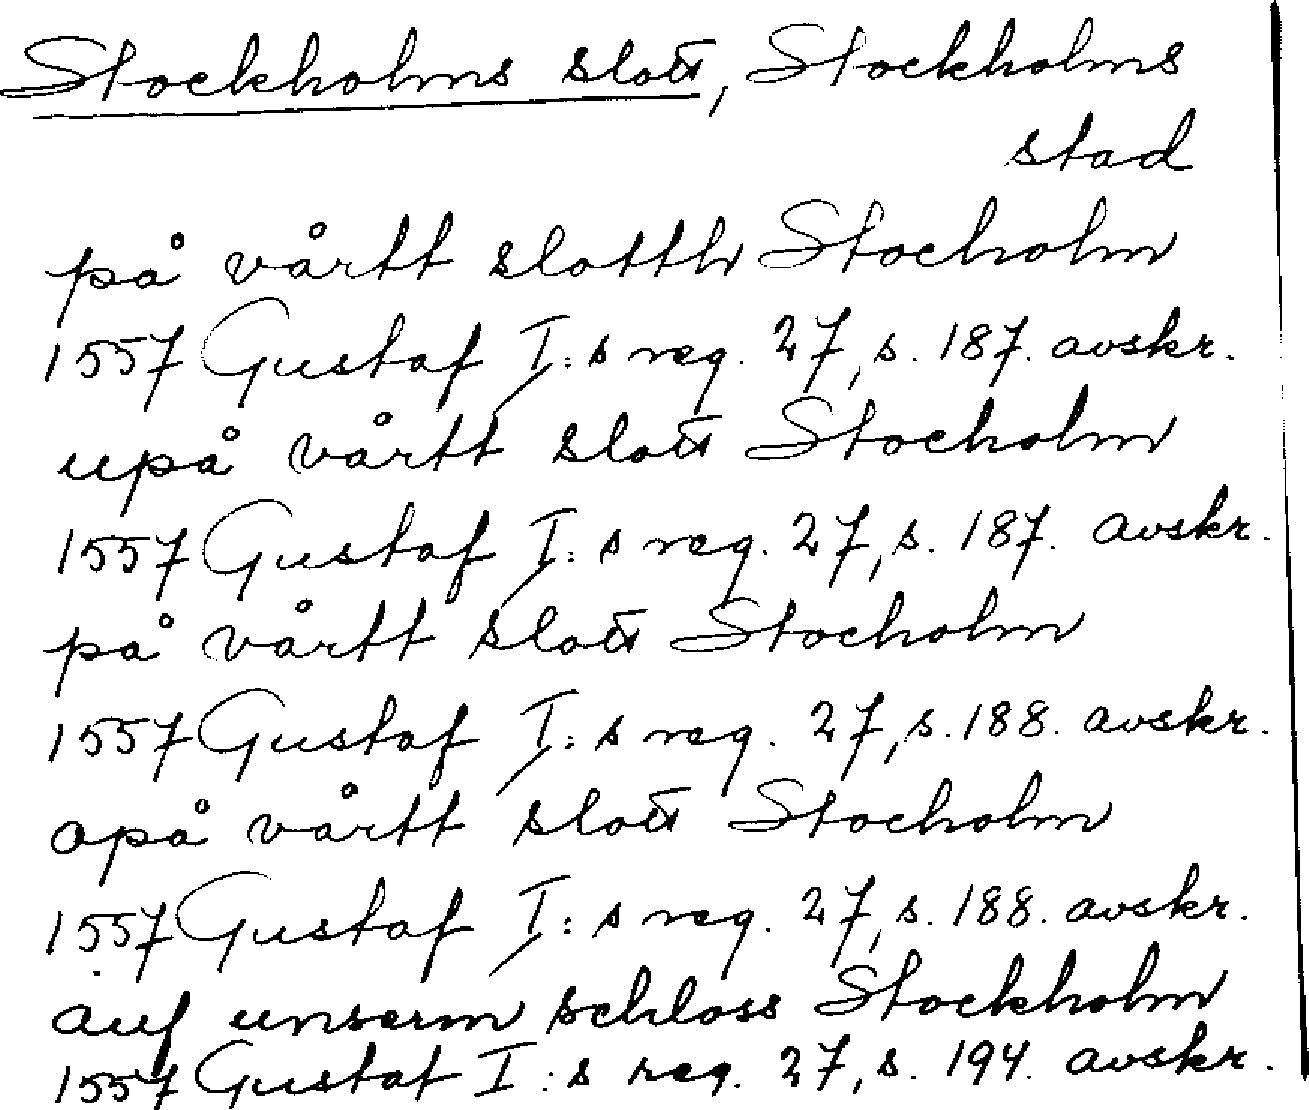 Stockholms slott, Stockholms
stad
på vårtt slotth Stocholm
1557 Gustaf I:s reg. 27, s. 187. avskr.
upå vårtt slott Stocholm
1557 Gustaf I:s reg. 27, s. 187. avskr.
på vårtt slott Stocholm
1557 Gustaf I:s reg. 27, s. 188. avskr.
opå vårtt slott Stocholm
1557 Gustaf I:s reg. 27, s. 188. avskr.
auf unserm schloss Stockholm
1557 Gustaf I:s reg. 27, s. 194. avskr.